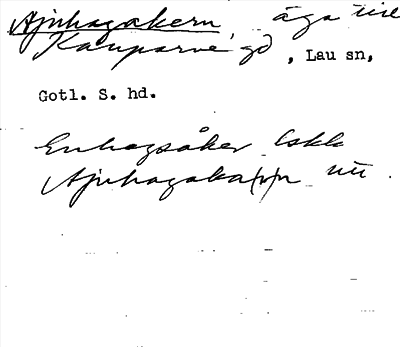 Ajnhagakern, äga till
Kauparve gd, Lau sn,
Gotl. S. hd.
Enhagsåker Lskk
Ajnhagaka(r)n nu